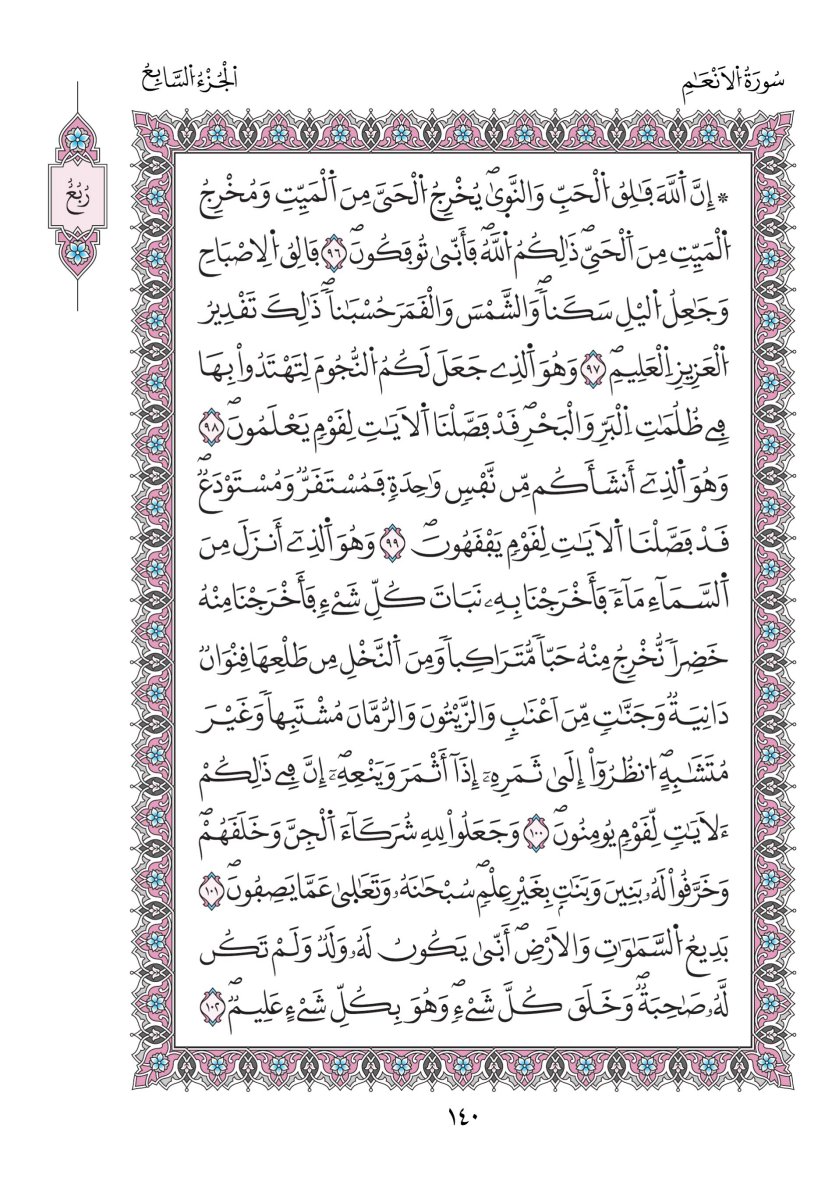 سُورَةُ اُ۬لَانْعَٰمِ
اُ۬لْجُزْءُ اُ۬لسَّابِعُ
رُبُعُ
* إِنَّ اَ۬للَّهَ فَٰلِقُ اُ۬لْحَبِّ وَالنَّو۪يٰۖ يُخْرِجُ اُ۬لْحَيَّ مِنَ اَ۬لْمَيِّتِ وَمُخْرِجُ
اُ۬لْمَيِّتِ مِنَ اَ۬لْحَيِّۖ ذَٰلِكُمُ اُ۬للَّهُۖ فَأَنّ۪يٰ تُوفَكُونَۖ ٩٦ فَالِقُ اُ۬لِاصْبَاحِ
وَجَٰعِلُ اُ۬ليْلِ سَكَناٗۖ وَالشَّمْسَ وَالْقَمَرَ حُسْبَٰناٗۖ ذَٰلِكَ تَقْدِيرُ
اُ۬لْعَزِيزِ اِ۬لْعَلِيمِۖ ٩٧ وَهُوَ اَ۬لذِے جَعَلَ لَكُمُ اُ۬لنُّجُومَ لِتَهْتَدُواْ بِهَا
فِے ظُلُمَٰتِ اِ۬لْبَرِّ وَالْبَحْرِۖ قَدْ فَصَّلْنَا اَ۬لَايَٰتِ لِقَوْمٖ يَعْلَمُونَۖ ٩٨
وَهُوَ اَ۬لذِےٓ أَنشَأَكُم مِّن نَّفْسٖ وَٰحِدَةٖ فَمُسْتَقَرّٞ وَمُسْتَوْدَعٞۖ
قَدْ فَصَّلْنَا اَ۬لَايَٰتِ لِقَوْمٖ يَفْقَهُونَۖ ٩٩ وَهُوَ اَ۬لذِےٓ أَنزَلَ مِنَ
اَ۬لسَّمَآءِ مَآءٗ فَأَخْرَجْنَا بِهِۦ نَبَاتَ كُلِّ شَےْءٖ فَأَخْرَجْنَا مِنْهُ
خَضِراٗ نُّخْرِجُ مِنْهُ حَبّاٗ مُّتَرَاكِباٗ وَمِنَ اَ۬لنَّخْلِ مِن طَلْعِهَا قِنْوَانٞ
دَانِيَةٞ وَجَنَّٰتٖ مِّنَ اَعْنَٰبٖ وَالزَّيْتُونَ وَالرُّمَّانَ مُشْتَبِهاٗ وَغَيْرَ
مُتَشَٰبِهٍۖ اُ۟نظُرُوٓاْ إِلَىٰ ثَمَرِهِۦٓ إِذَآ أَثْمَرَ وَيَنْعِهِۦٓۖ إِنَّ فِے ذَٰلِكُمْ
ءَلَايَٰتٖ لِّقَوْمٖ يُومِنُونَۖ ١٠٠ وَجَعَلُواْ لِلهِ شُرَكَآءَ اَ۬لْجِنَّ وَخَلَقَهُمْۖ
وَخَرَّقُواْ لَهُۥ بَنِينَ وَبَنَٰتِۢ بِغَيْرِ عِلْمٖۖ سُبْحَٰنَهُۥ وَتَعَٰل۪يٰ عَمَّا يَصِفُونَۖ ١٠١
بَدِيعُ اُ۬لسَّمَٰوَٰتِ وَالَارْضِۖ أَنّ۪يٰ يَكُونُ لَهُۥ وَلَدٞ وَلَمْ تَكُن
لَّهُۥ صَٰحِبَةٞۖ وَخَلَقَ كُلَّ شَےْءٖۖ وَهُوَ بِكُلِّ شَےْءٍ عَلِيمٞۖ ١٠٢
١٤٠